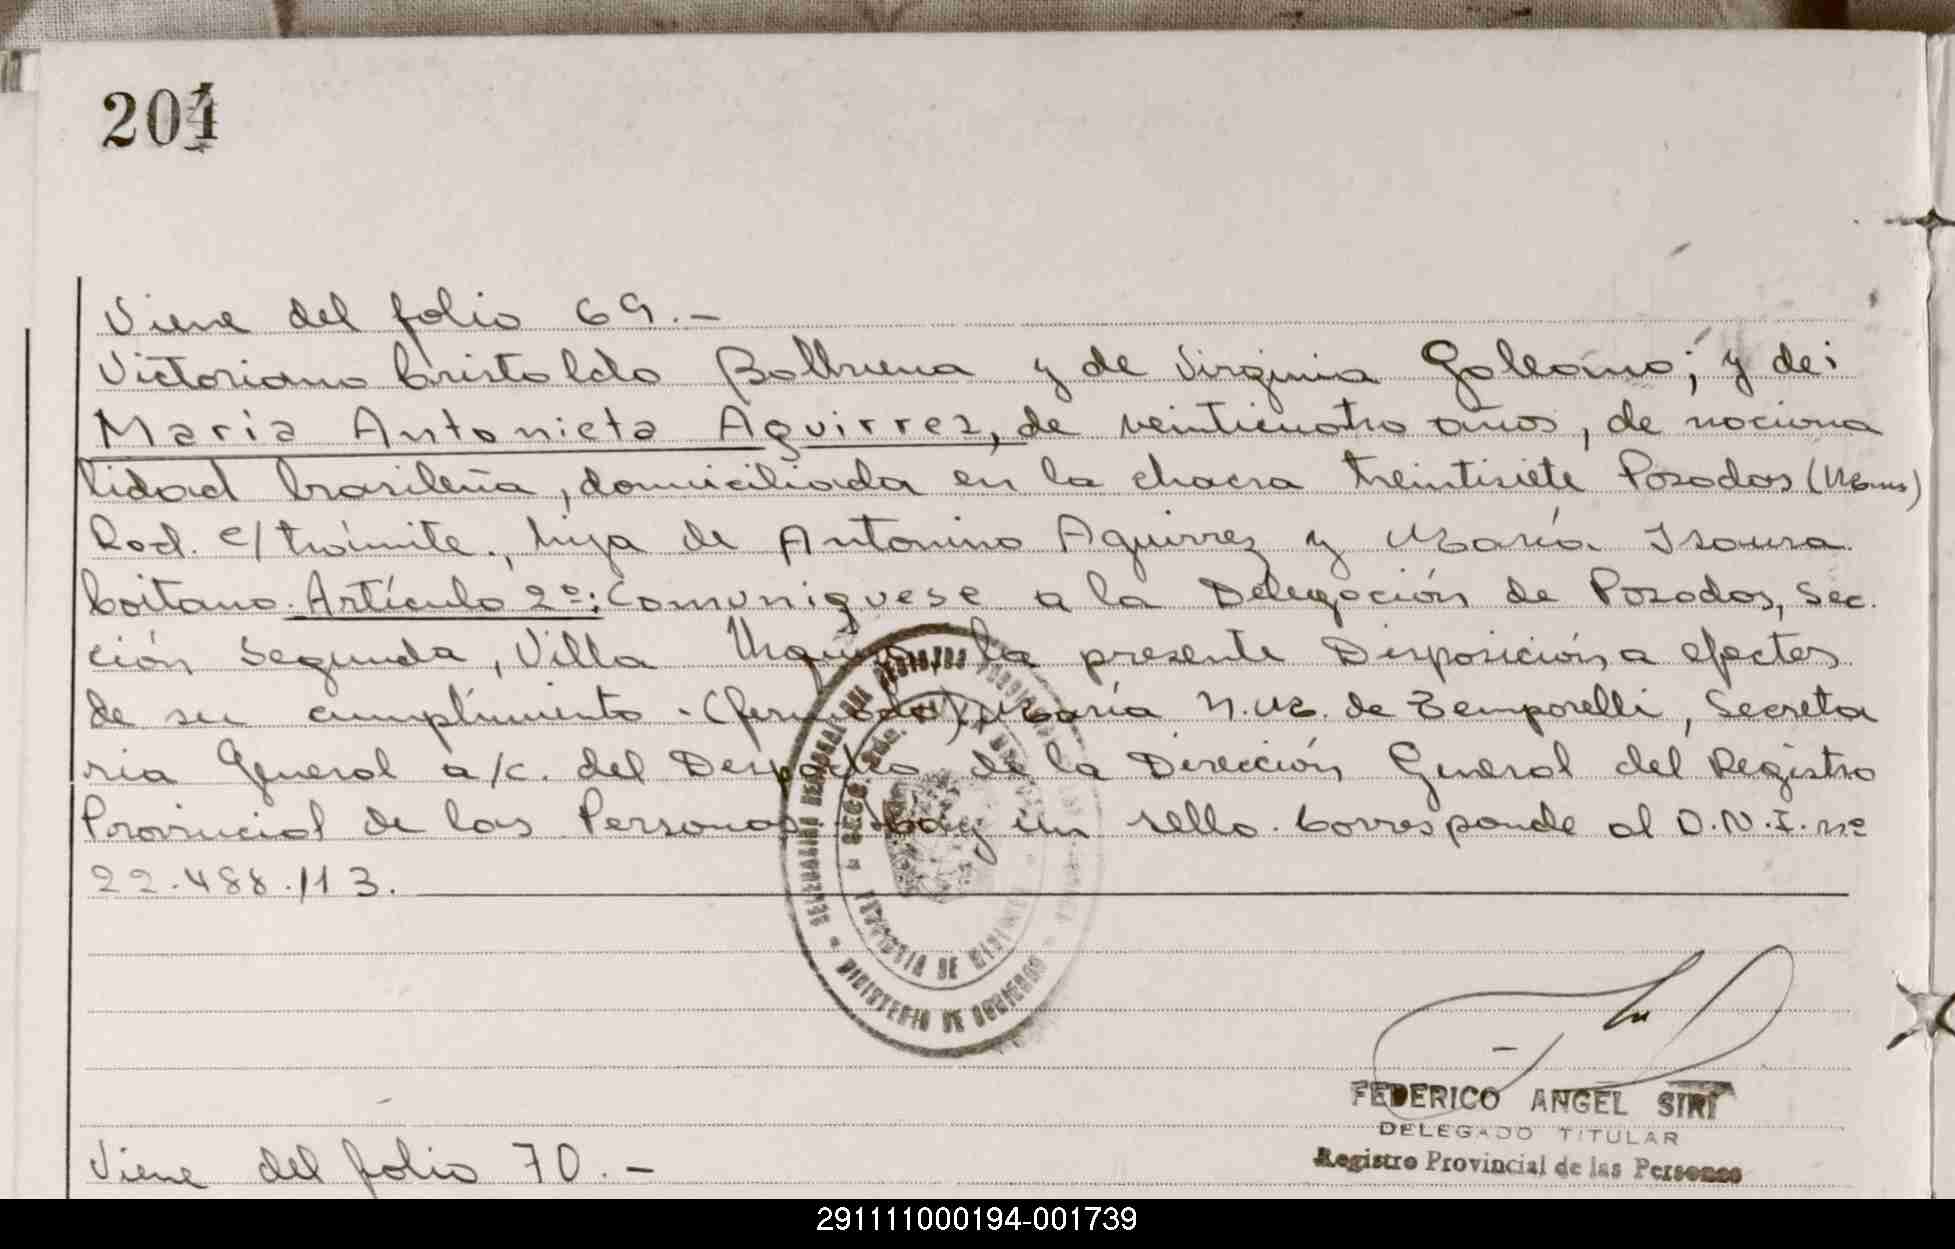 204
Viene del folio 69.-
Victoriano Cristaldo Balbuena y de Virginia Galeano; y de:
Maria Antonieta Aguirrez, de veinticuatro años, de naciona
lidad brasileña, domiciliada en la chacra treintisiete Posadas (Mnes)
Rad. e/trámite., hija de Antonino Aguirrez y María Isaura
Coitano. Artículo 2º: Comuniquese a la Delegación de Posadas, Sec.
ción Segunda, Villa Urquiza, la presente Disposición, a efectos
de su cumplimiento. (firmado) María N.M. de Zemporelli, Secreta
ria General a/c. del Despacho de la Dirección General del Registro
Provincial de las Personas. Hay un sello. Corresponde al D.N.I. nº
22.488.113.
PROVINCIA DE MISIONES
MINISTERIO DE GOBIERNO
FEDERICO ANGEL SIRI
DELEGADO TITULAR
Registro Provincial de las Personas
Viene del folio 70.-
291111000194-001739